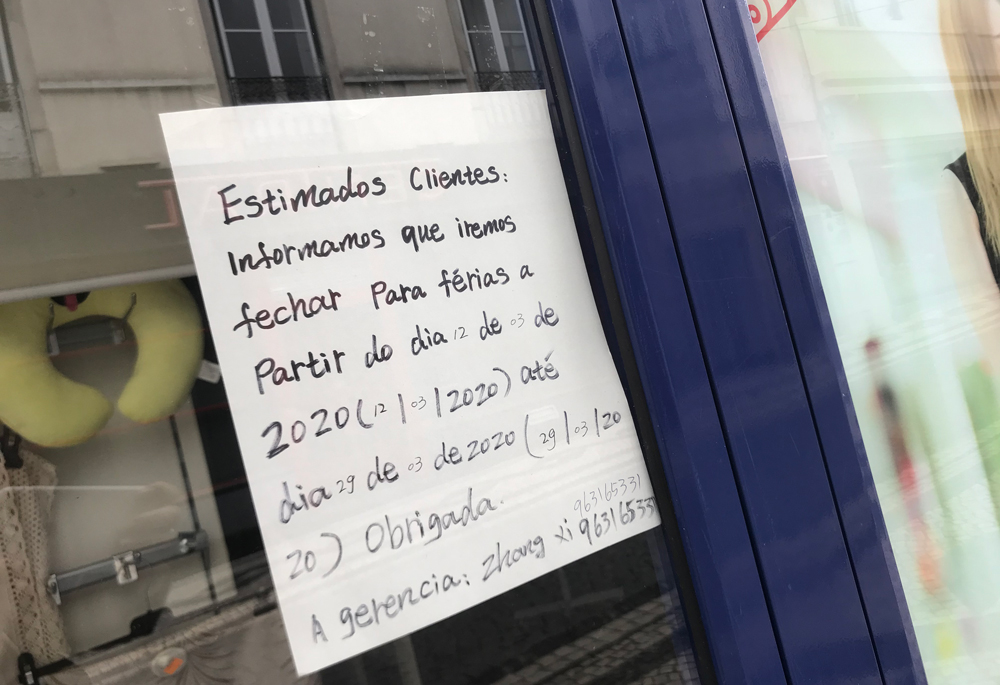 Estimados Clientes:
Informamos que iremos
fechar Para férias a
Partir do dia 12 de 03 de
2020 (12/03/2020) até
dia 29 de 03 de 2020 (29/03/20
20) Obrigada.
963165331
A gerencia: zhang xi 963165331